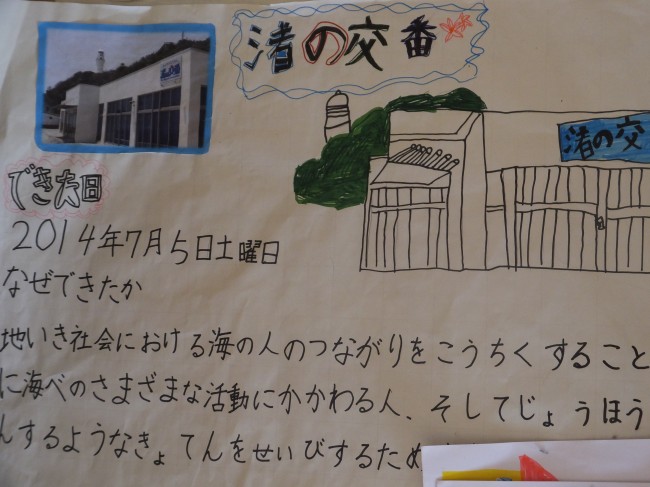 渚の交番
渚の交
できた日
2014年7月5日土曜日
なぜできたか
地いき社会における海の人のつながりをこうちくすること
に海べのさまざまな活動にかかわる人、そしてじょうほう
んするようなきょてんをせいびするため